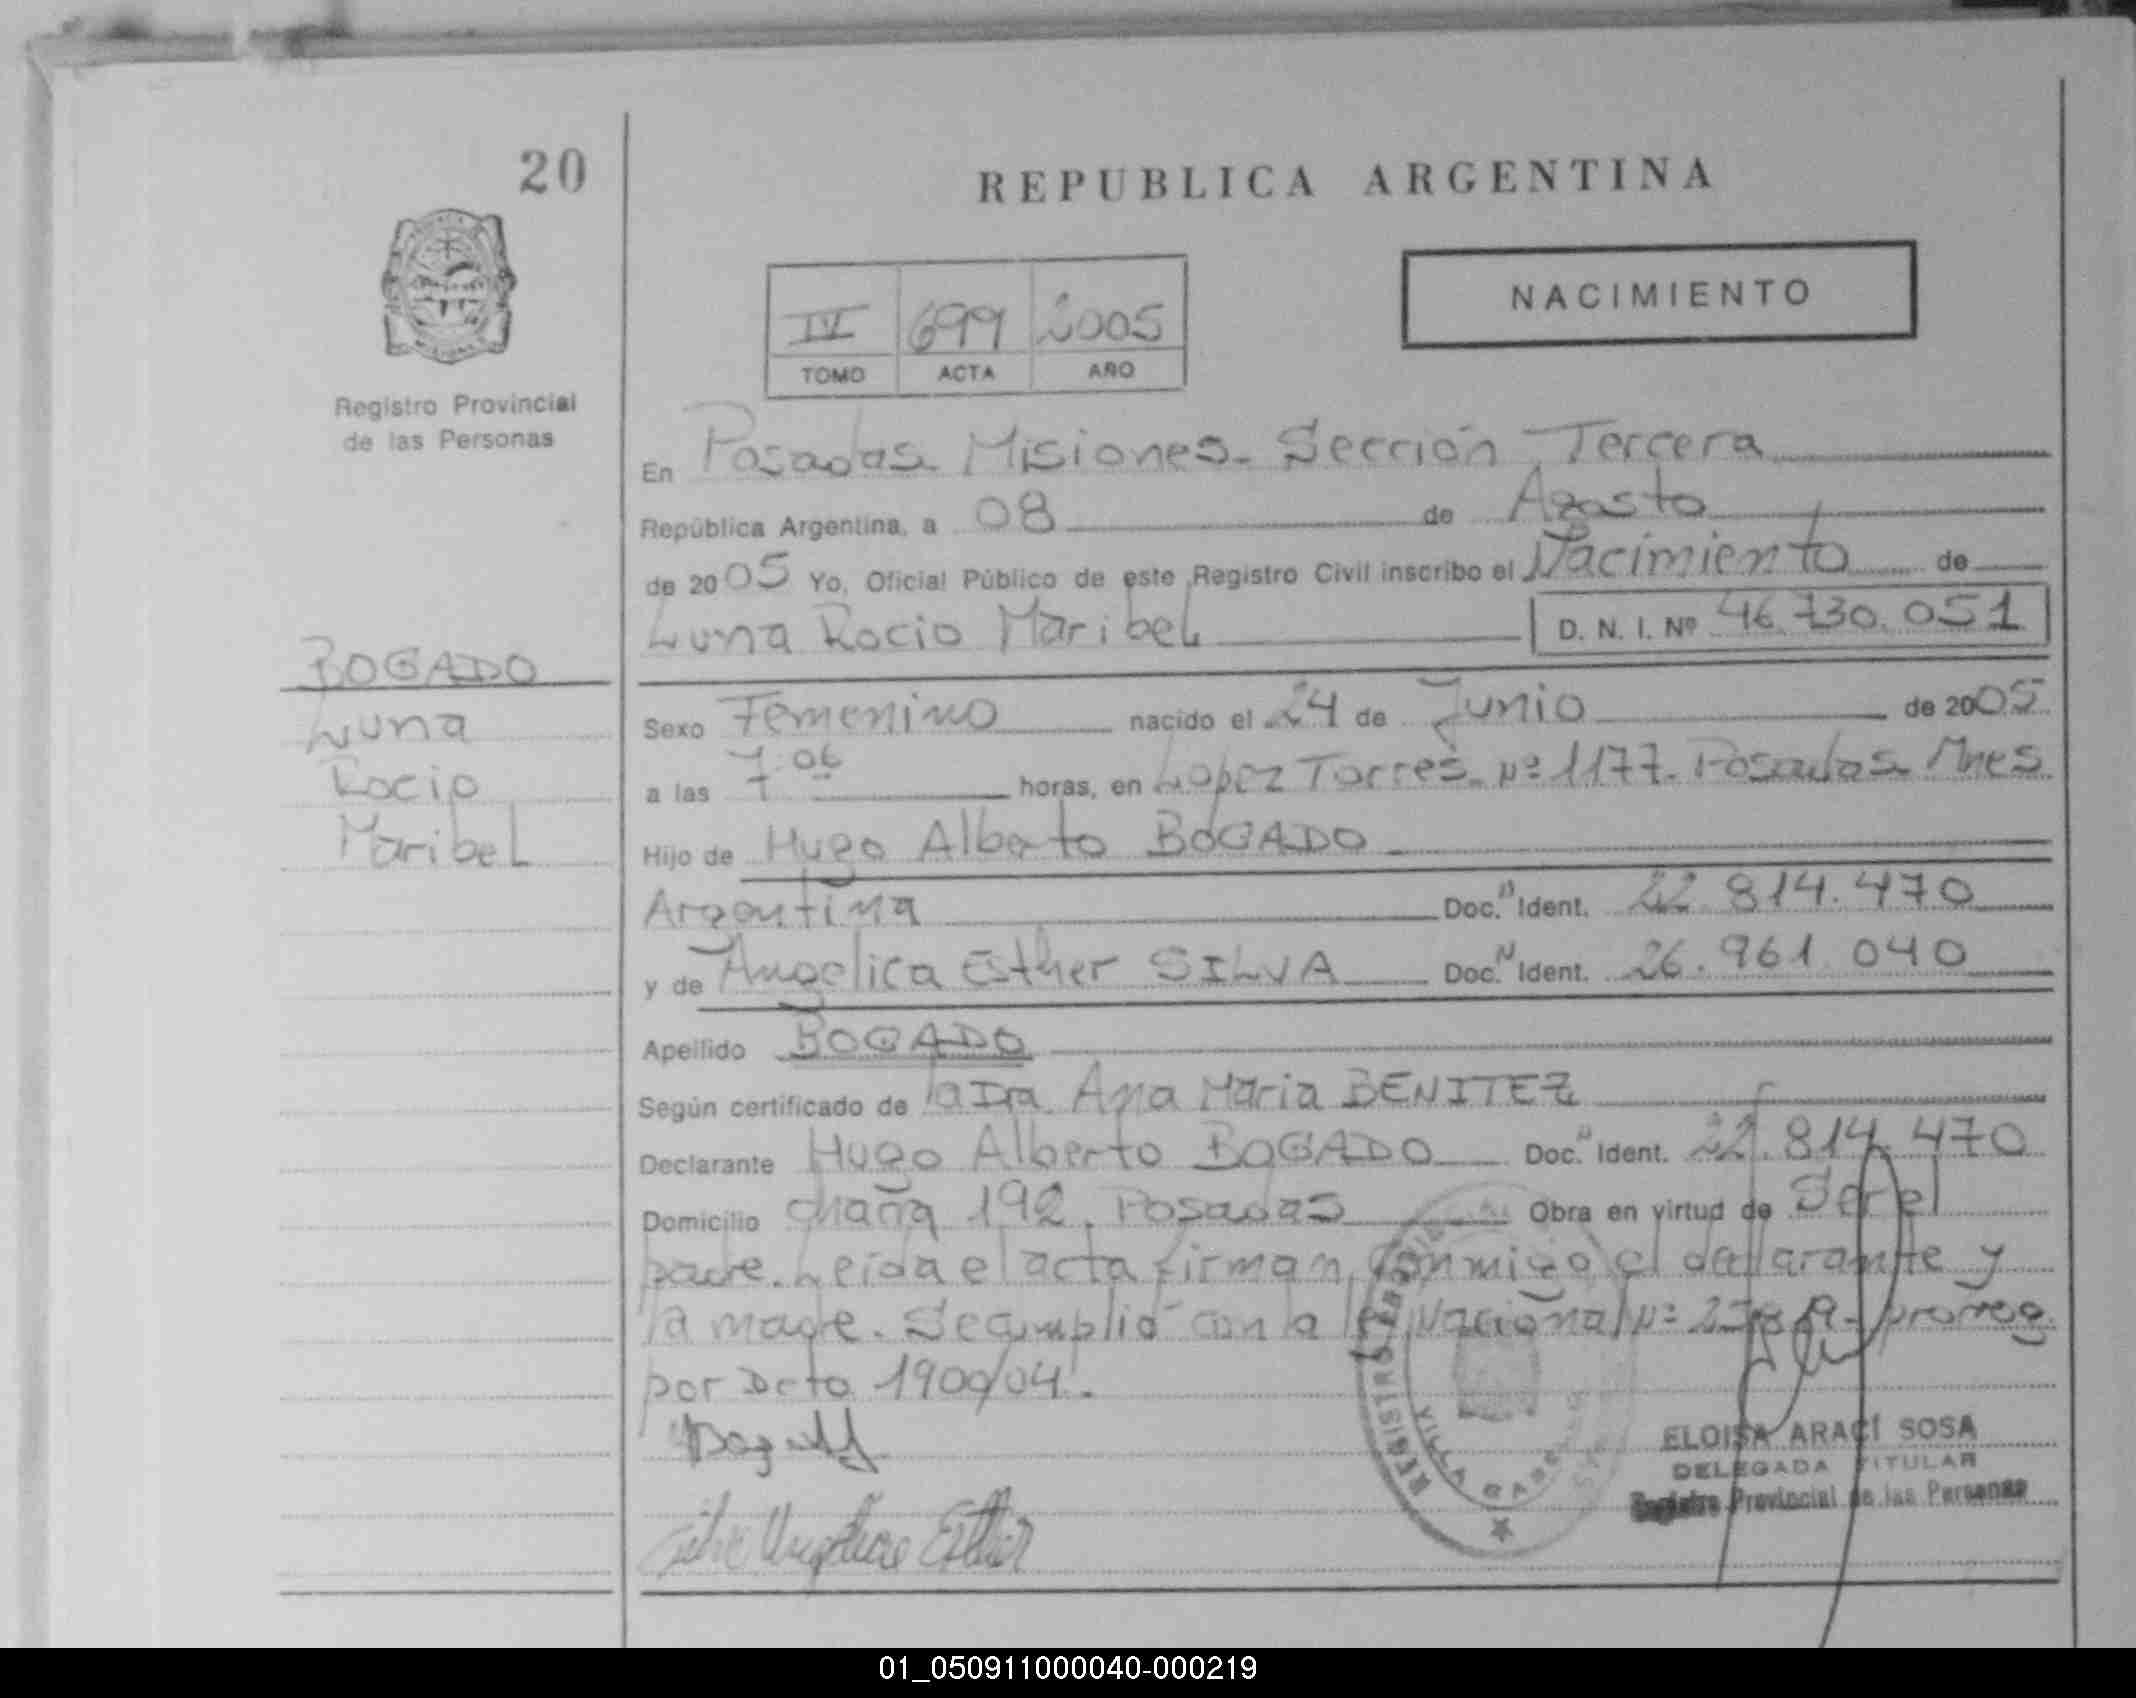 20
REPUBLICA ARGENTINA
IV 699 2005
TOMO ACTA AÑO
NACIMIENTO
Registro Provincial
de las Personas
En Posadas Misiones. Sección Tercera
República Argentina, a 08 de Agosto
de 2005 Yo, Oficial Público de este Registro Civil inscribo el Nacimiento de
Luna Rocio Maribel D. N. I. Nº 46.730.051
BOGADO
Luna
Rocio
Maribel
Sexo Femenino nacido el 24 de Junio de 2005
a las 7:06 horas, en Lopez Torres. nº 1177. Posadas Mnes
Hijo de Hugo Alberto BOGADO
Argentina Doc. Ident. 22.814.470
y de Angelica Esther SILVA Doc. Ident. 26.961.040
Apellido BOGADO
Según certificado de la Dra Ana Maria BENITEZ
Declarante Hugo Alberto BOGADO Doc. Ident. 22.814.470
Domicilio 192. Posadas Obra en virtud de Ser el
padre. Leida el acta firman conmigo el declarante y
la madre. Se cumplió con la ley Nacional nº prorrog.
por Dcto 1900/04.
ELOISA ARACÍ SOSA
DELEGADA TITULAR
Registro Provincial de las Personas
Silva Angelica Esther
REGISTRO
VILLA CABELLO
01_050911000040-000219